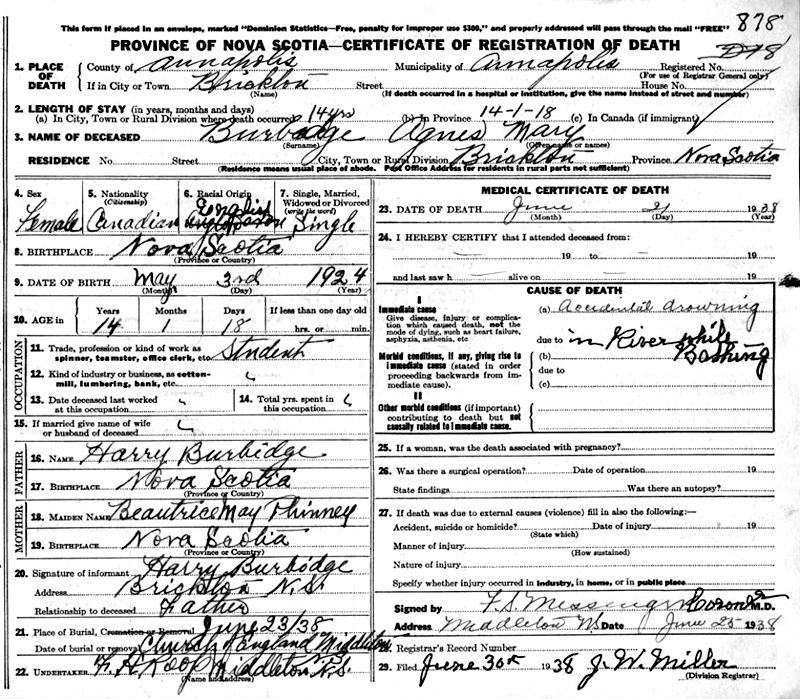 This form if placed in an envelope, marked "Dominion Statistics—Free, penalty for improper use $300," and properly addressed will pass through the mail "FREE"
878
PROVINCE OF NOVA SCOTIA—CERTIFICATE OF REGISTRATION OF DEATH
1. PLACE OF DEATH County of Annapolis Municipality of Annapolis Registered No.
(For use of Registrar General only)
If in City or Town Brickton Street House No.
(Name) (If death occurred in a hospital or institution, give the name instead of street and number)
2. LENGTH OF STAY (in years, months and days)
(a) In City, Town or Rural Division where death occurred 14 yrs (b) In Province 14-1-18 (c) In Canada (if immigrant)
3. NAME OF DECEASED Burbidge Agnes Mary
(Surname) (Given name or names)
RESIDENCE No. Street City, Town or Rural Division Brickton Province Nova Scotia
(Residence means usual place of abode. Post Office Address for residents in rural parts not sufficient)
4. Sex 5. Nationality (Citizenship) 6. Racial Origin 7. Single, Married, Widowed or Divorced (write the word)
Female Canadian English Single
8. BIRTHPLACE Nova Scotia
(Province or Country)
9. DATE OF BIRTH May 3rd 1924
(Month) (Day) (Year)
10. AGE in Years Months Days If less than one day old
14 1 18 hrs. or min.
OCCUPATION
11. Trade, profession or kind of work as spinner, teamster, office clerk, etc. Student
12. Kind of industry or business, as cotton-mill, lumbering, bank, etc.
13. Date deceased last worked at this occupation 14. Total yrs. spent in this occupation
15. If married give name of wife or husband of deceased
FATHER
16. NAME Harry Burbidge
17. BIRTHPLACE Nova Scotia
(Province or Country)
MOTHER
18. MAIDEN NAME Beautrice May Phinney
19. BIRTHPLACE Nova Scotia
(Province or Country)
20. Signature of informant Harry Burbidge
Address Brickton N.S.
Relationship to deceased Father
21. Place of Burial, Cremation or Removal June 23/38
Date of burial or removal Church of England Middleton
22. UNDERTAKER Middleton N.S.
(Name and address)
MEDICAL CERTIFICATE OF DEATH
23. DATE OF DEATH June 21 1938
(Month) (Day) (Year)
24. I HEREBY CERTIFY that I attended deceased from:
19 to 19
and last saw h alive on 19
CAUSE OF DEATH
I
Immediate cause
Give disease, injury or complication which caused death, not the mode of dying, such as heart failure, asphyxia, asthenia, etc.
(a) Accidental drowning
due to in River while
Morbid conditions, if any, giving rise to immediate cause (stated in order proceeding backwards from immediate cause).
(b) Bathing
due to
(c)
II
Other morbid conditions (if important) contributing to death but not causally related to immediate cause.
25. If a woman, was the death associated with pregnancy?
26. Was there a surgical operation? Date of operation 19
State findings Was there an autopsy?
27. If death was due to external causes (violence) fill in also the following:—
Accident, suicide or homicide? Date of injury 19
(State which)
Manner of injury
(How sustained)
Nature of injury
Specify whether injury occurred in industry, in home, or in public place
Signed by Coroner M.D.
Address Middleton N.S. Date June 25 1938
28. Registrar's Record Number
29. Filed June 30th 1938 J. W. Miller
(Division Registrar)